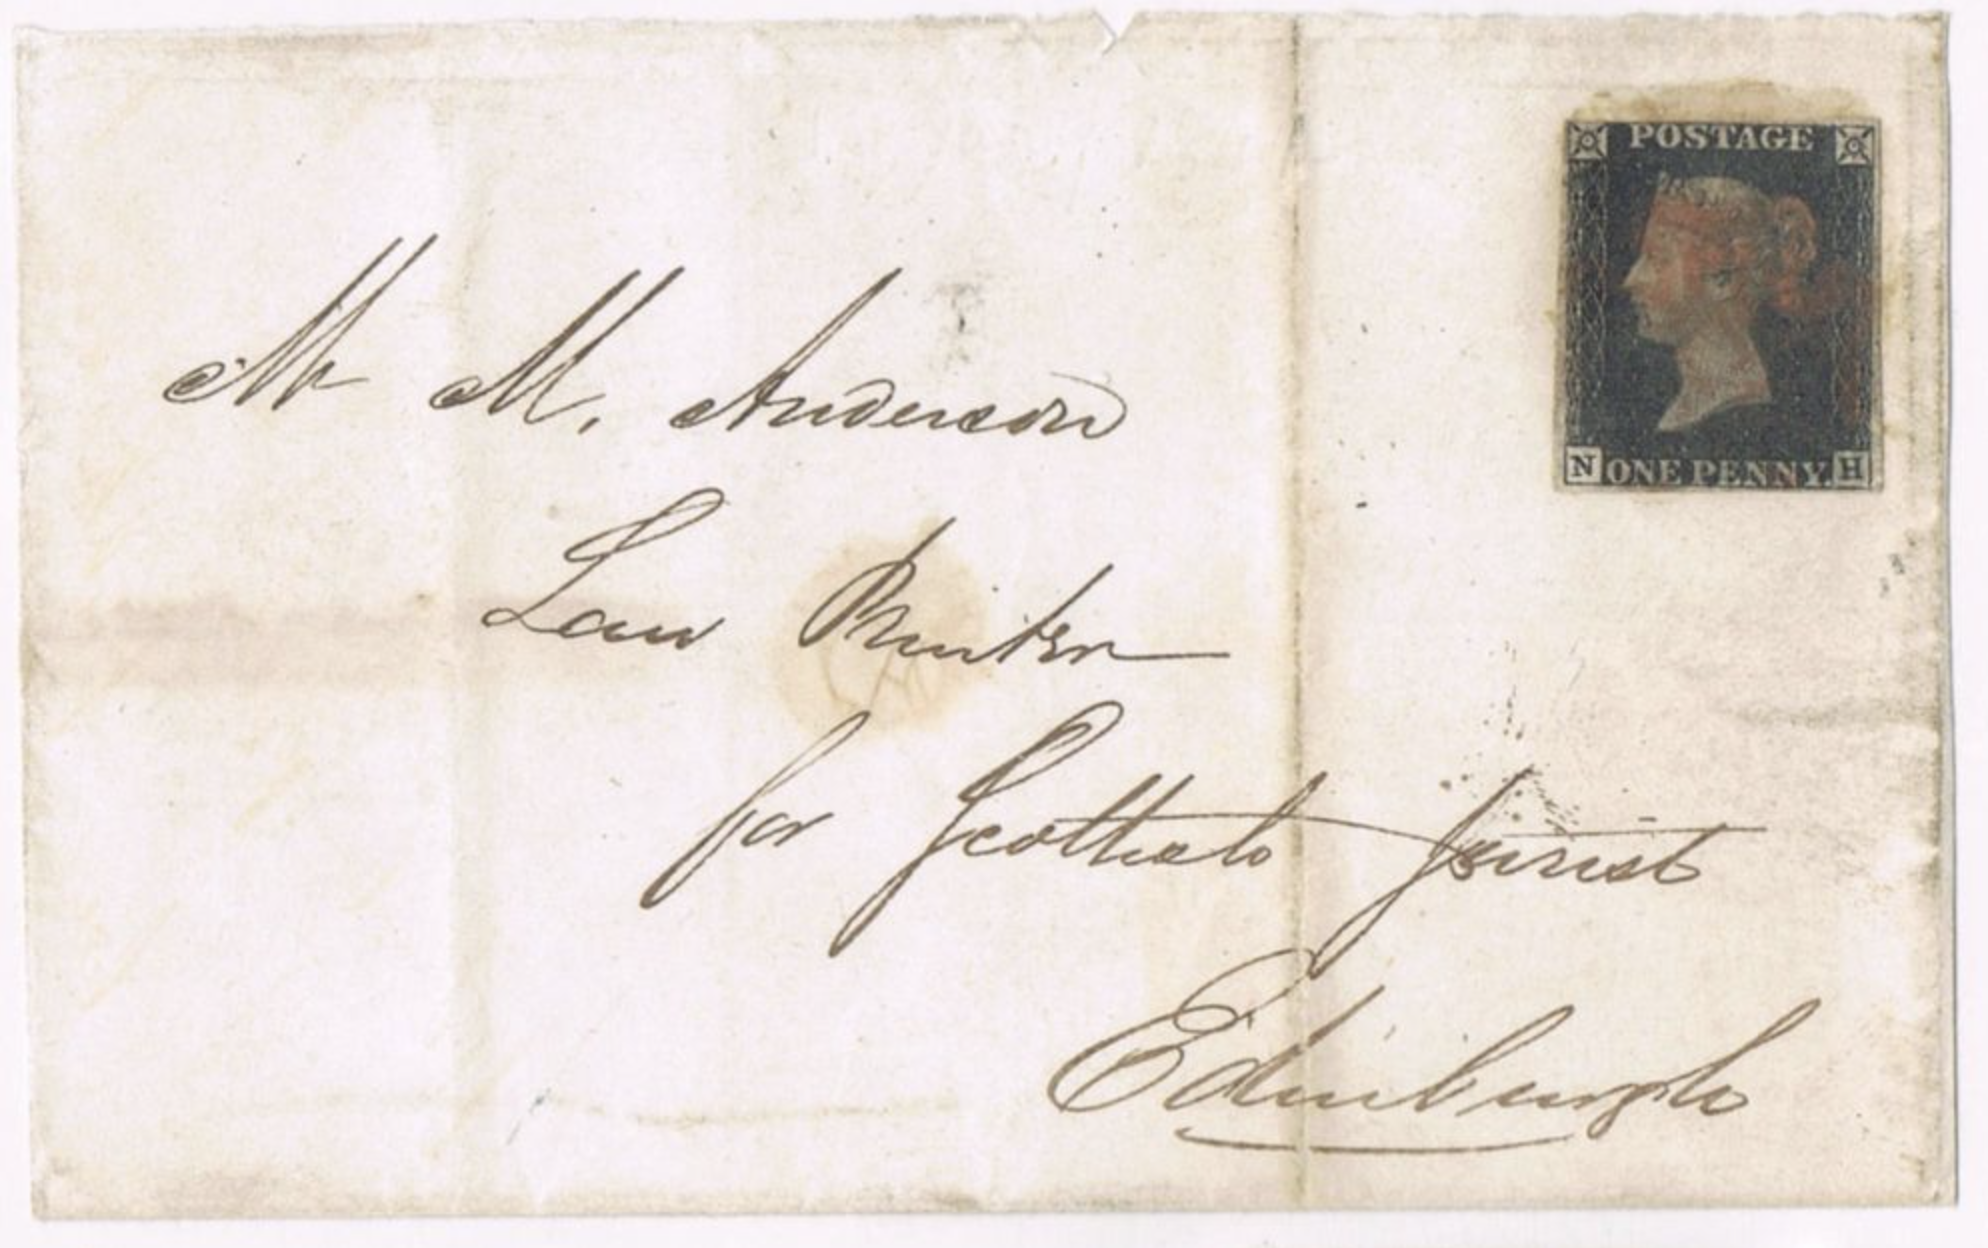 POSTAGE
N ONE PENNY. H
Mr M. Anderson
Law Printer
for Scottish Jurist
Edinburgh